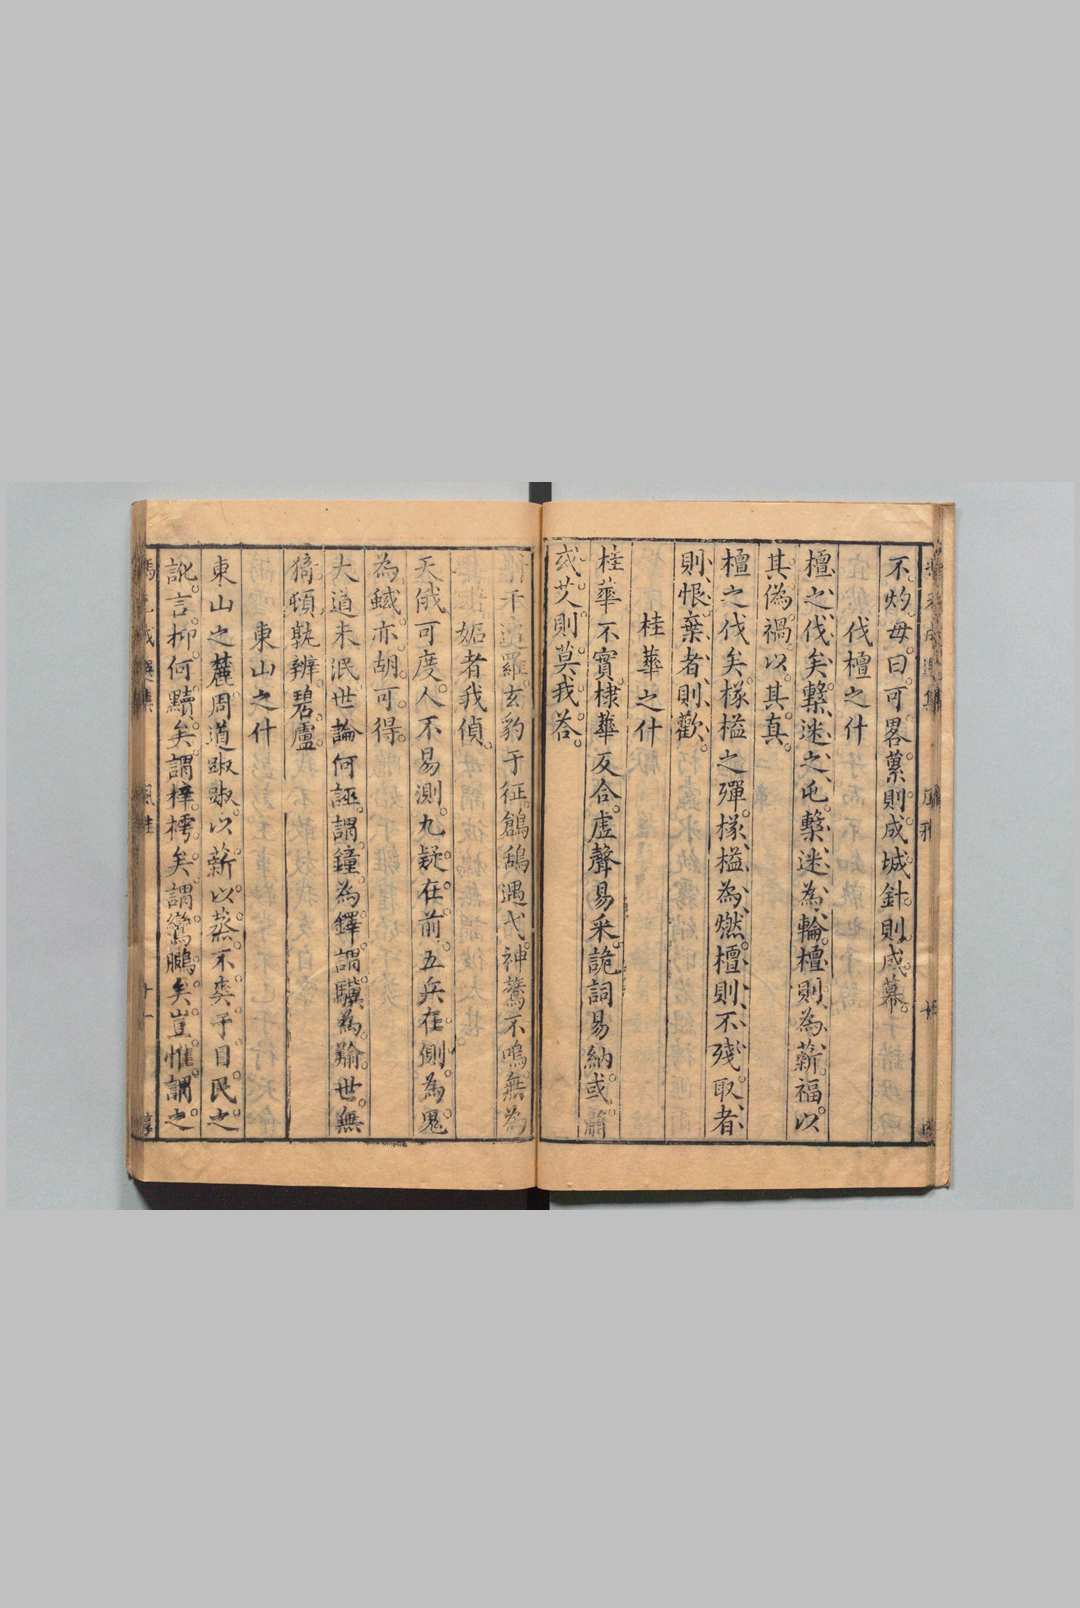 不灼毋曰可畧蔂則成城針則成幕
伐檀之什
檀之伐矣繫迷之屯繫迷為輪檀則為薪福以
其偽禍以其真
檀之伐矣檖橀之彈檖橀為燃檀則不殘取者
則恨棄者則歡
桂華之什
桂華不實棣華反合虛聲易采詭詞易納或蕭
或艾則莫我荅
不 羅玄豹于征鶬鴰遇弋神鷔不鳴無為
妬者我偵
天俄可度人不易測九疑在前五兵在側為鬼
為蜮亦胡可得
大道未泯世論何誣謂鐘為鐸謂驥為羭世無
猗頓孰辨碧盧
東山之什
東山之麓周道踧踧以薪以蒸不奕予目民之
訛言抑何黷矣謂梓樗矣謂鸞鵬矣豈惟謂之